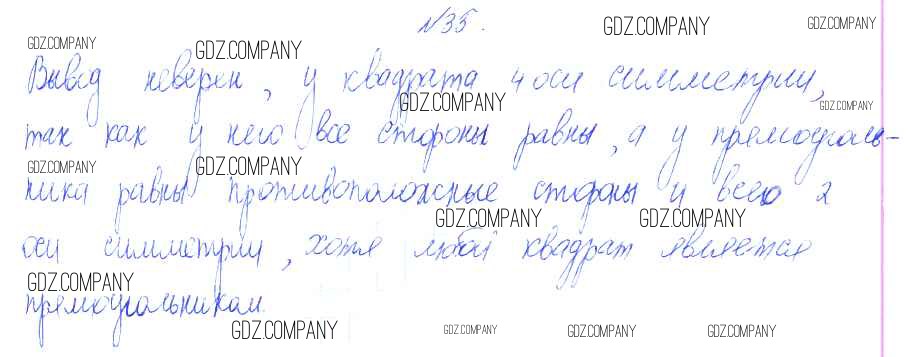 №35.
GDZ.COMPANY GDZ.COMPANY GDZ.COMPANY GDZ.COMPANY
Вывод неверен, у квадрата 4 оси симметрии,
GDZ.COMPANY GDZ.COMPANY
так как у него все стороны равны, а у прямоуголь-
GDZ.COMPANY GDZ.COMPANY
ника равны противоположные стороны и всего 2
GDZ.COMPANY GDZ.COMPANY
оси симметрии, хотя любой квадрат является
GDZ.COMPANY
прямоугольником.
GDZ.COMPANY GDZ.COMPANY GDZ.COMPANY GDZ.COMPANY